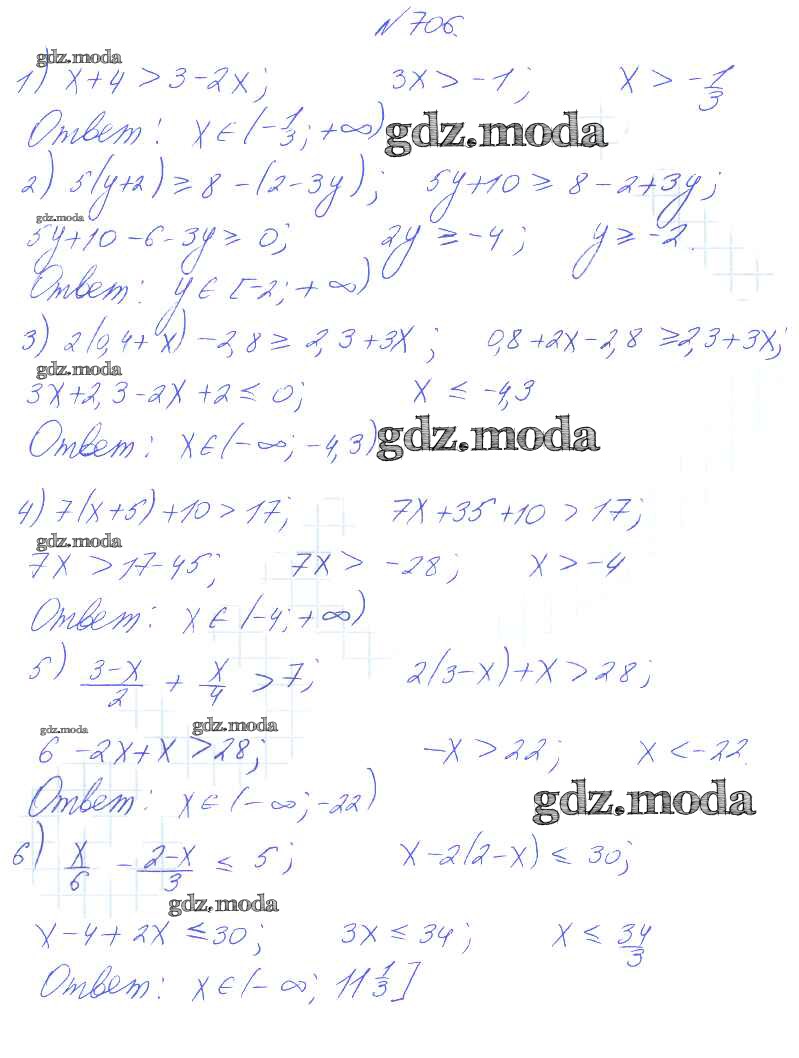 N 706.
gdz.moda
1) x+4 > 3-2x; 3x > -1; x > -1/3
Ответ: x ∈ (-1/3; +∞) gdz.moda
2) 5(y+2) ≥ 8-(2-3y); 5y+10 ≥ 8-2+3y;
gdz.moda
5y+10-6-3y ≥ 0; 2y ≥ -4; y ≥ -2.
Ответ: y ∈ [-2; +∞)
3) 2(0,4+x)-2,8 ≥ 2,3+3x; 0,8+2x-2,8 ≥ 2,3+3x;
gdz.moda
3x+2,3-2x+2 ≤ 0; x ≤ -4,3
Ответ: x ∈ (-∞; -4,3) gdz.moda
4) 7(x+5)+10 > 17; 7x+35+10 > 17;
gdz.moda
7x > 17-45; 7x > -28; x > -4
Ответ: x ∈ (-4; +∞)
5) (3-x)/2 + x/4 > 7; 2(3-x)+x > 28;
gdz.moda gdz.moda
6-2x+x > 28; -x > 22; x < -22.
Ответ: x ∈ (-∞; -22) gdz.moda
6) x/6 - (2-x)/3 ≤ 5; x-2(2-x) ≤ 30;
gdz.moda
x-4+2x ≤ 30; 3x ≤ 34; x ≤ 34/3
Ответ: x ∈ (-∞; 11 1/3]